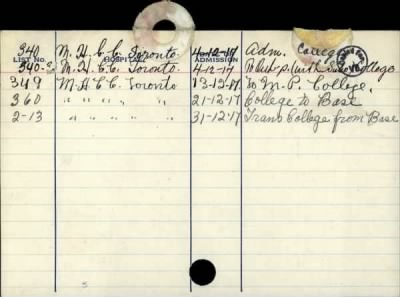 340 M.H.C.C. Toronto. 4-12-17 Adm. College
LIST NO. HOSPITAL ADMISSION
340-2 M.H.C.C. Toronto. 4-12-17 College
349 M.H.C.C. Toronto 13-12-17. To M.P. College.
360 " " " " " 21-12-17 College to Base
2-13 " " " " " 31-12-17 Trans College from Base